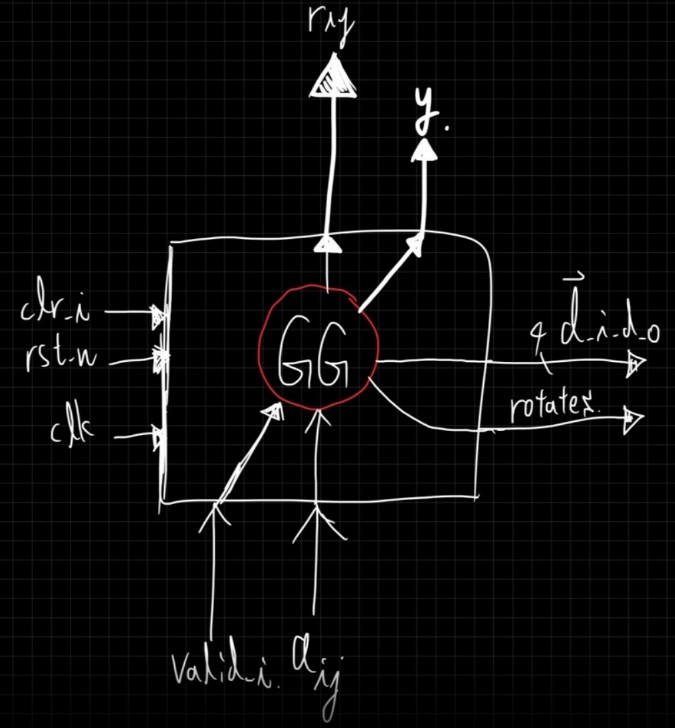 rij
y.
clr_i
rst_n
clk
GG
4 d_i_d_o
rotates.
valid_i. aij